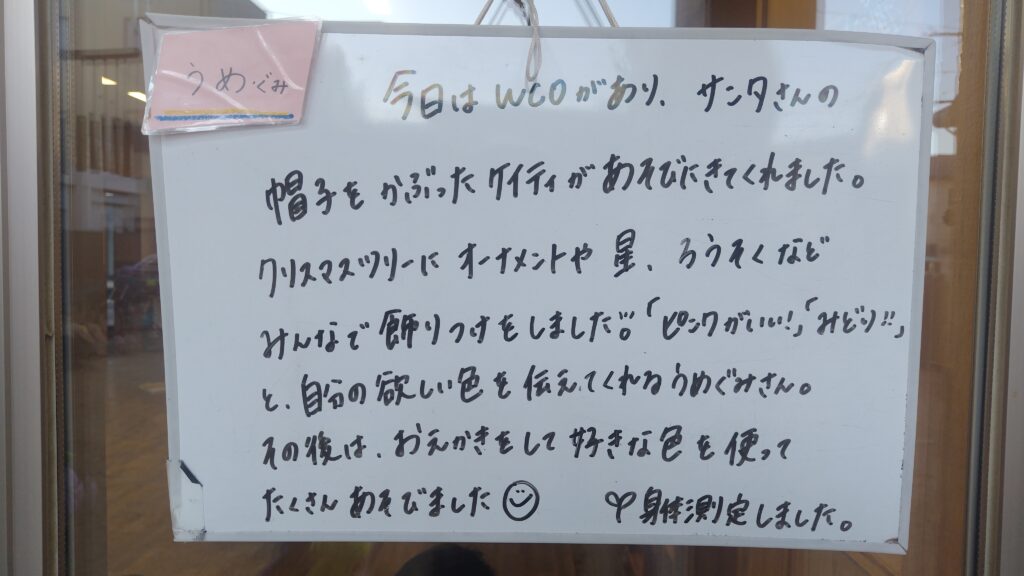 うめぐみ
今日はWCOがあり、サンタさんの
帽子をかぶったケイティがあそびにきてくれました。
クリスマスツリーに オーナメントや 星、ろうそくなど
みんなで飾りつけをしました!!。「ピンクがいい!」「みどり!!」
と、自分の欲しい色を伝えてくれるうめぐみさん。
その後は、おえかきをして好きな色を使って
たくさんあそびました☺ ♡身体測定しました。